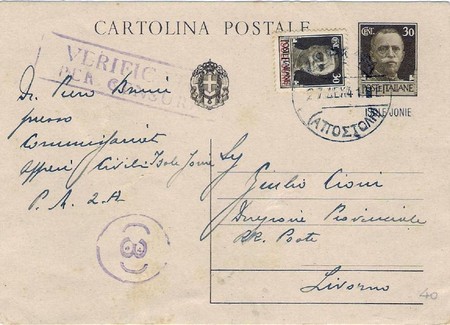 CARTOLINA POSTALE
CENT. 30
POSTE ITALIANE
ISOLE JONIE
POSTE ITALIANE 30
VERIFIC
PER CENSUR
27 ΔΕΚ 41
ΑΠΟΣΤΟΛΩ
Dr. Piero
presso
Commissariato
Affari Civili Isole Jonie
P. M. 2. A.
3
Sig
Giulio Cioni
Direzione Provinciale
RR. Poste
Livorno
40